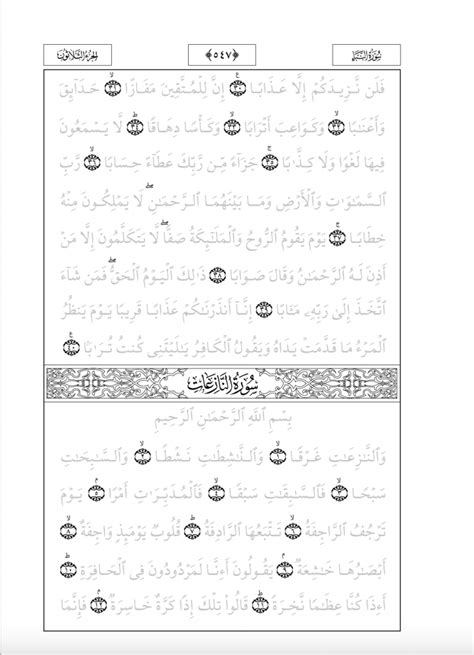 سُورَةُ النَّبَإِ ﴿٥٤٧﴾ الجزء الثلاثون
فَلَن نَّزِيدَكُمْ إِلَّا عَذَابًا ۝٣٠ إِنَّ لِلْمُتَّقِينَ مَفَازًا ۝٣١ حَدَآئِقَ
وَأَعْنَٰبًا ۝٣٢ وَكَوَاعِبَ أَتْرَابًا ۝٣٣ وَكَأْسًا دِهَاقًا ۝٣٤ لَّا يَسْمَعُونَ
فِيهَا لَغْوًا وَلَا كِذَّٰبًا ۝٣٥ جَزَآءً مِّن رَّبِّكَ عَطَآءً حِسَابًا ۝٣٦ رَّبِّ
السَّمَٰوَٰتِ وَالْأَرْضِ وَمَا بَيْنَهُمَا الرَّحْمَٰنِ لَا يَمْلِكُونَ مِنْهُ
خِطَابًا ۝٣٧ يَوْمَ يَقُومُ الرُّوحُ وَالْمَلَٰٓئِكَةُ صَفًّا لَّا يَتَكَلَّمُونَ إِلَّا مَنْ
أَذِنَ لَهُ الرَّحْمَٰنُ وَقَالَ صَوَابًا ۝٣٨ ذَٰلِكَ الْيَوْمُ الْحَقُّ فَمَن شَآءَ
اتَّخَذَ إِلَىٰ رَبِّهِ مَـَٔابًا ۝٣٩ إِنَّآ أَنذَرْنَٰكُمْ عَذَابًا قَرِيبًا يَوْمَ يَنظُرُ
الْمَرْءُ مَا قَدَّمَتْ يَدَاهُ وَيَقُولُ الْكَافِرُ يَٰلَيْتَنِي كُنتُ تُرَٰبًا ۝٤٠
سُورَةُ النَّازِعَاتِ
بِسْمِ اللَّهِ الرَّحْمَٰنِ الرَّحِيمِ
وَالنَّٰزِعَٰتِ غَرْقًا ۝١ وَالنَّٰشِطَٰتِ نَشْطًا ۝٢ وَالسَّٰبِحَٰتِ
سَبْحًا ۝٣ فَالسَّٰبِقَٰتِ سَبْقًا ۝٤ فَالْمُدَبِّرَٰتِ أَمْرًا ۝٥ يَوْمَ
تَرْجُفُ الرَّاجِفَةُ ۝٦ تَتْبَعُهَا الرَّادِفَةُ ۝٧ قُلُوبٌ يَوْمَئِذٍ وَاجِفَةٌ ۝٨
أَبْصَٰرُهَا خَٰشِعَةٌ ۝٩ يَقُولُونَ أَءِنَّا لَمَرْدُودُونَ فِي الْحَافِرَةِ ۝١٠
أَءِذَا كُنَّا عِظَٰمًا نَّخِرَةً ۝١١ قَالُوا تِلْكَ إِذًا كَرَّةٌ خَاسِرَةٌ ۝١٢ فَإِنَّمَا